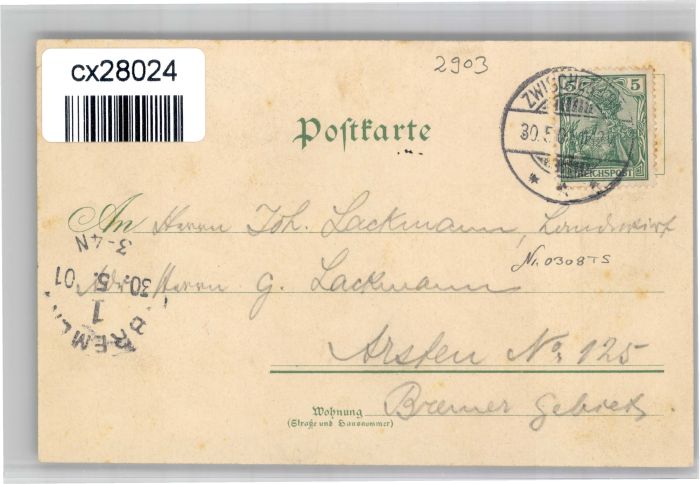 cx28024
2903
5 5
REICHSPOST
30.5.01
Postkarte
An Herrn Joh. Lackmann, Landwirt
Nr. 0308TS
3-4N
30. 5. 01
1
BREMEN
Adr. Herrn G. Lackmann
Arsten No: 125
Bremer Gebiet
Wohnung
(Straße und Hausnummer)